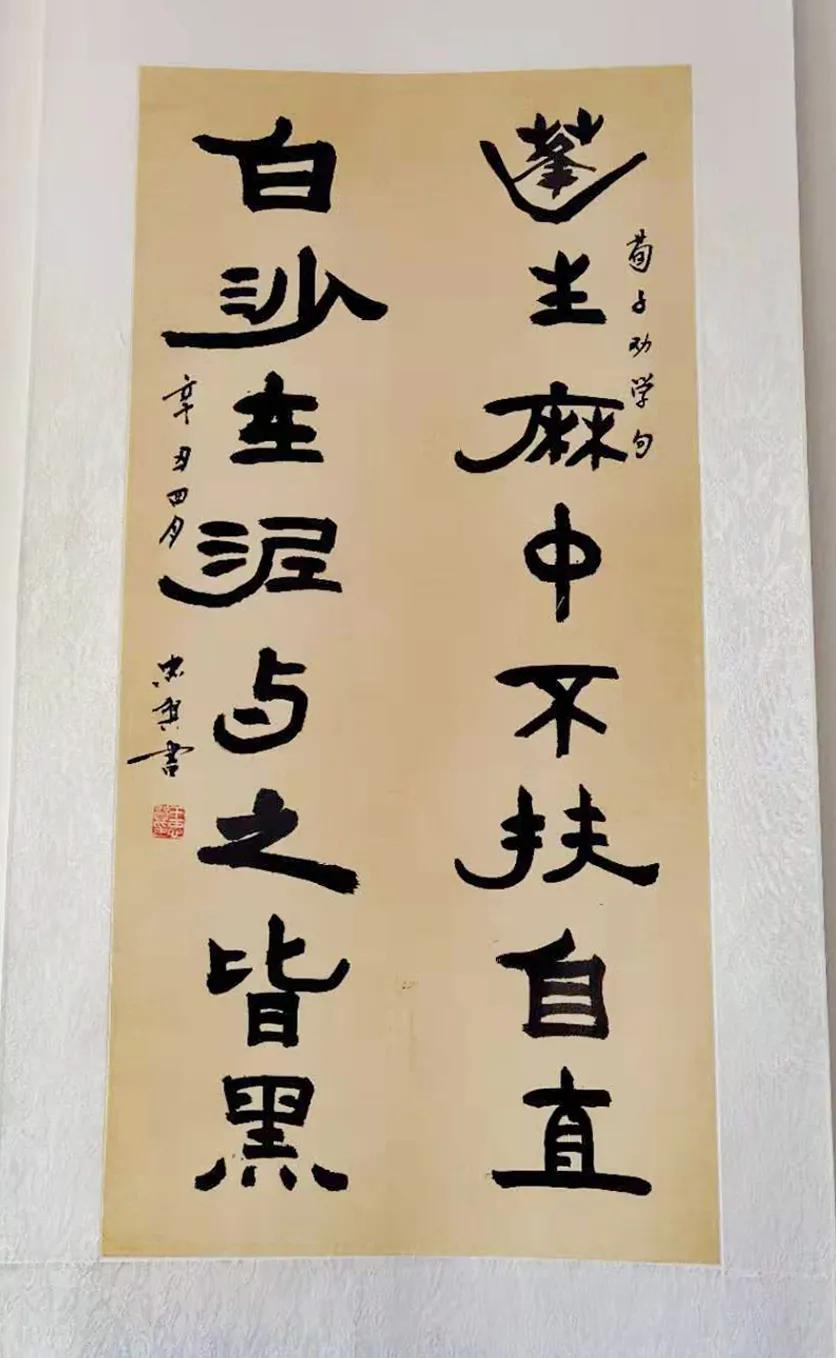 蓬生麻中不扶自直
荀子劝学句
白沙在泥与之皆黑
辛丑四月
书